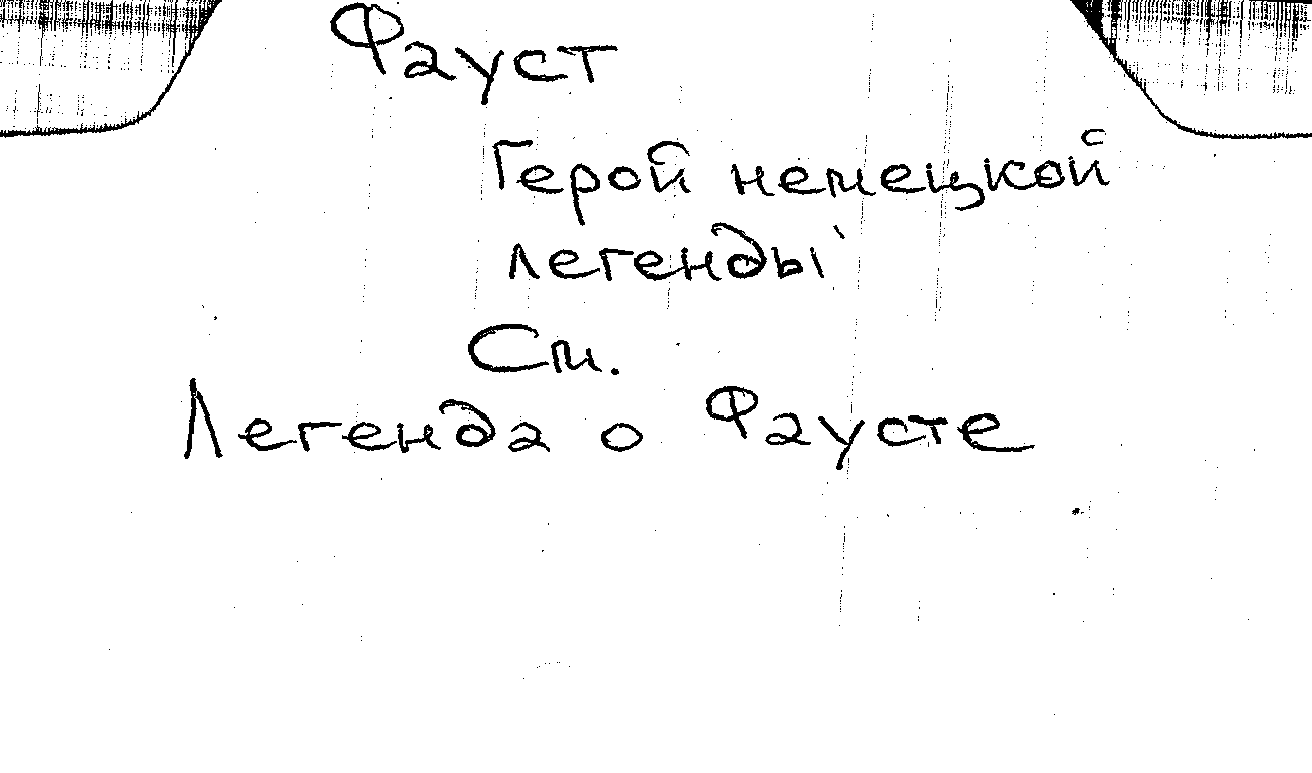 Фауст
Герой немецкой
легенды
См.
Легенда о Фаусте